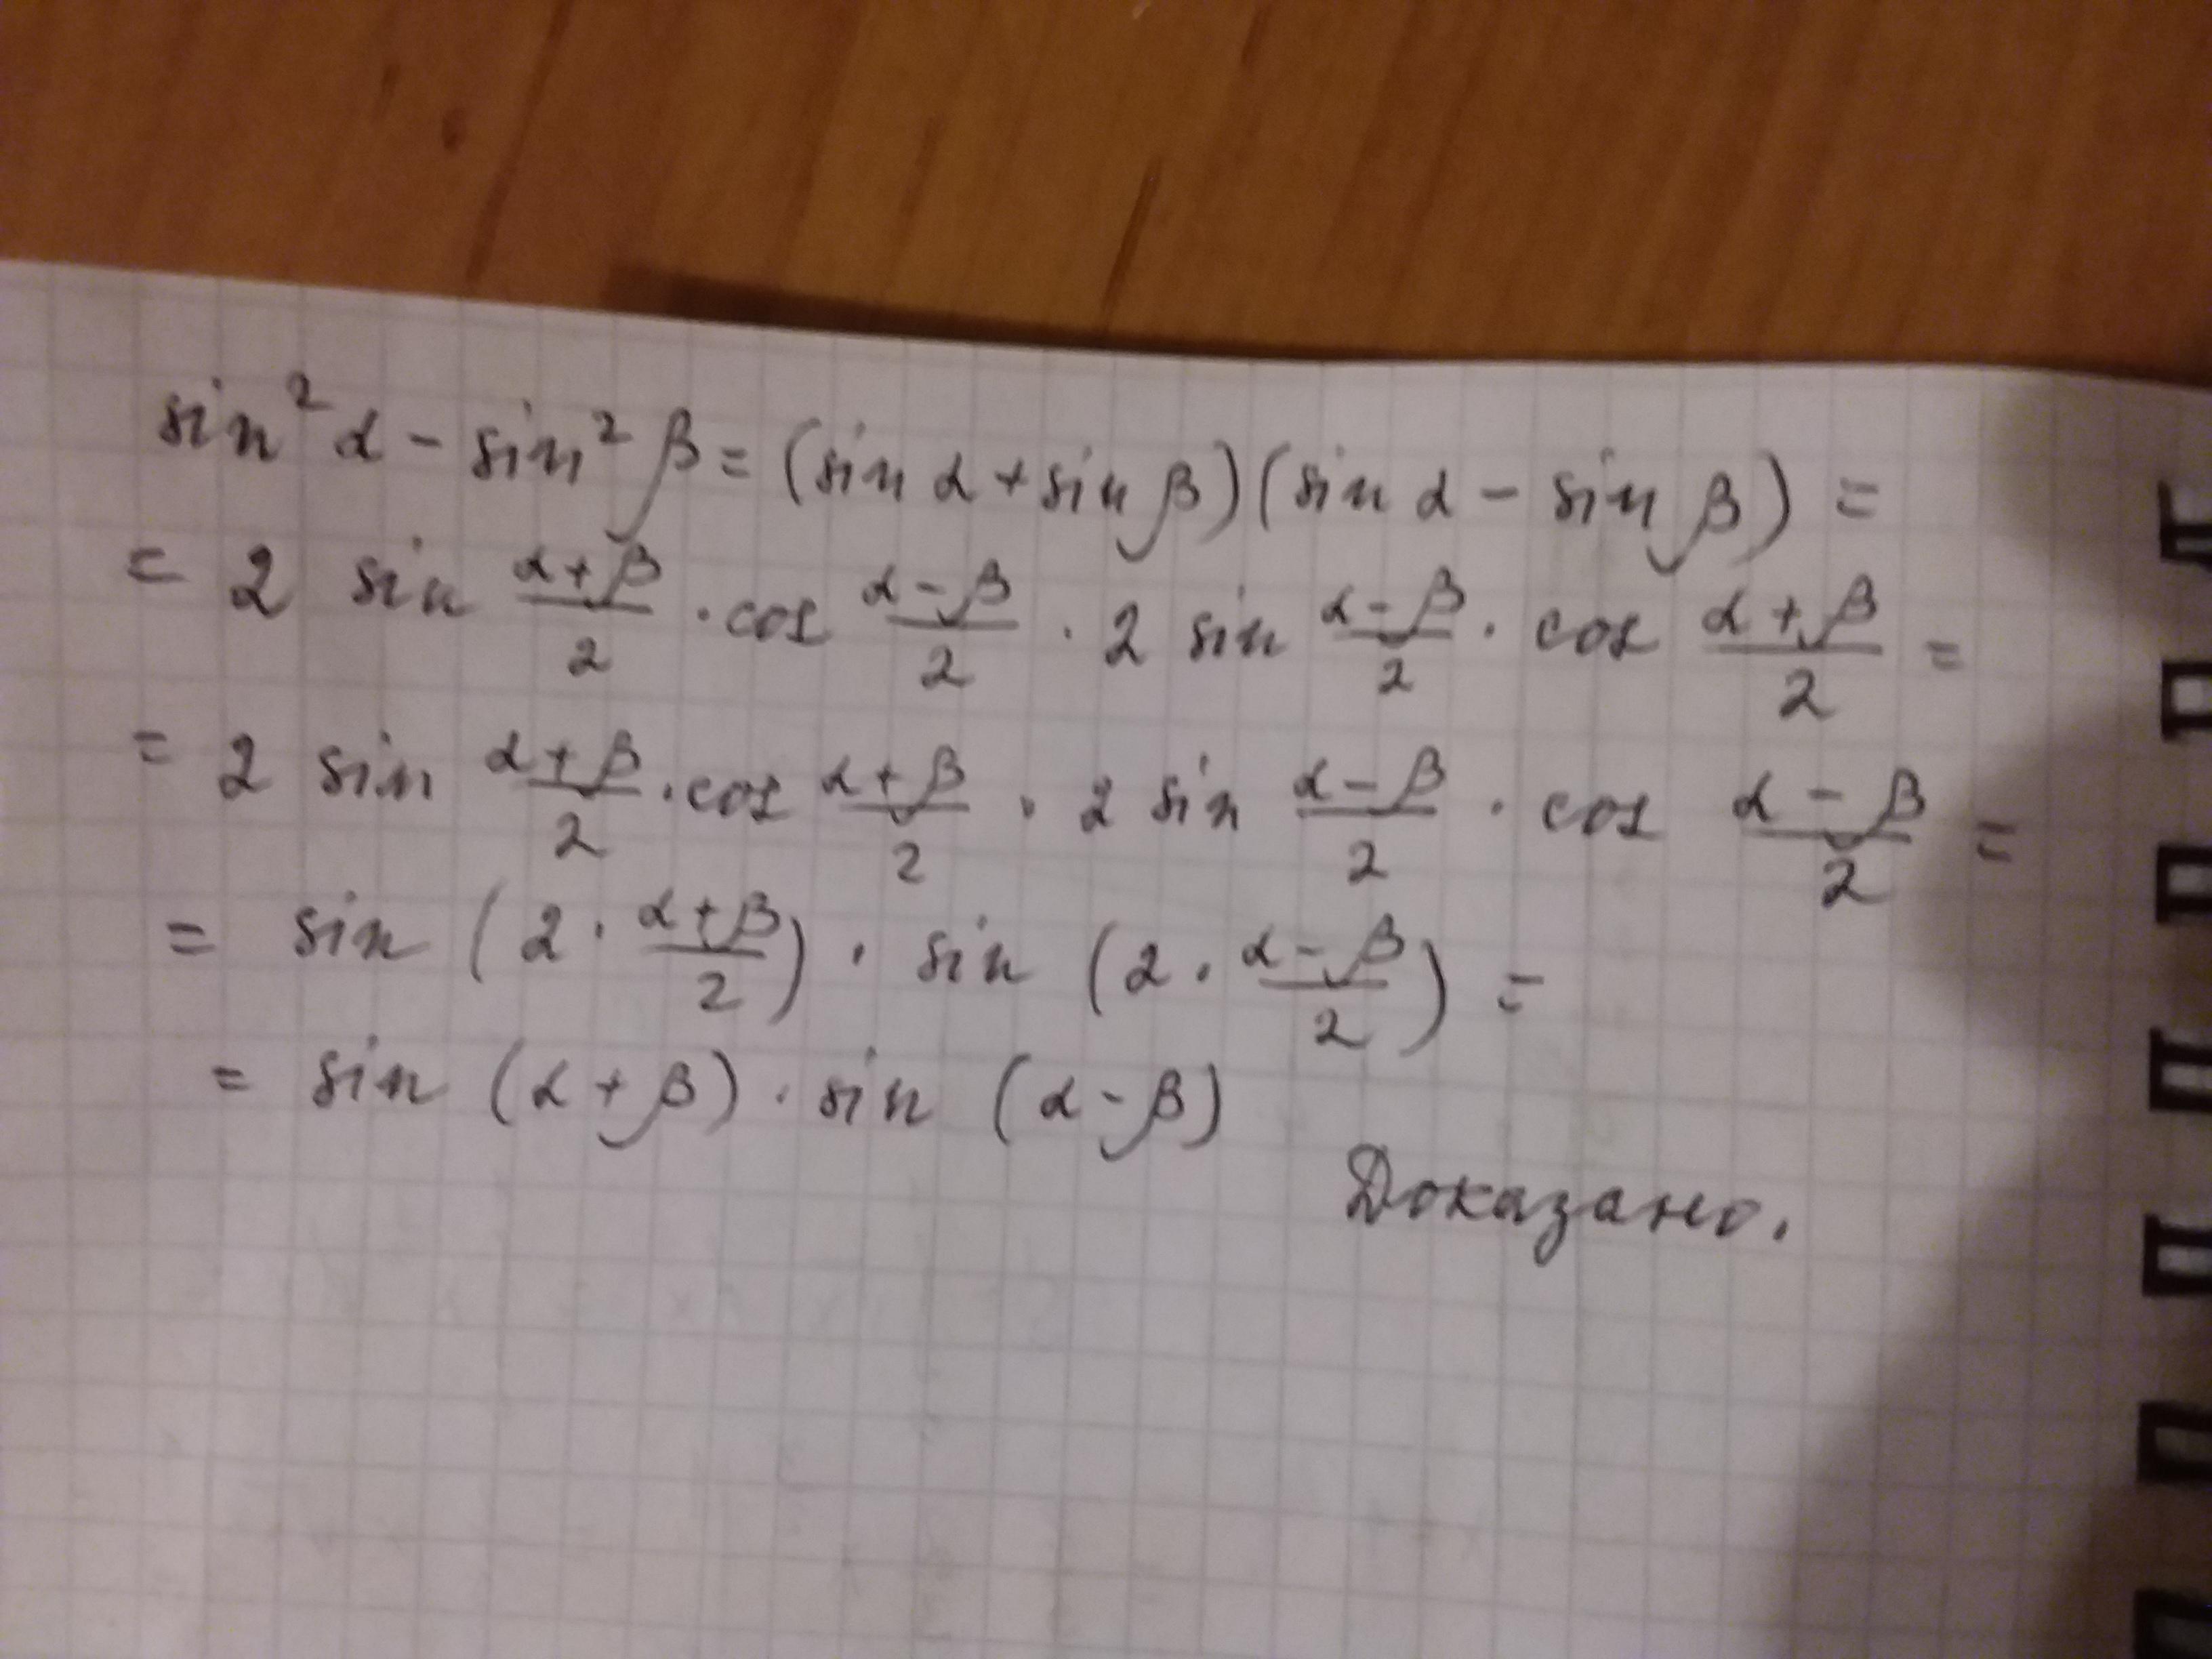 sin²α - sin²β = (sin α + sin β)(sin α - sin β) =
= 2 sin (α+β)/2 · cos (α-β)/2 · 2 sin (α-β)/2 · cos (α+β)/2 =
= 2 sin (α+β)/2 · cos (α+β)/2 · 2 sin (α-β)/2 · cos (α-β)/2 =
= sin (2 · (α+β)/2) · sin (2 · (α-β)/2) =
= sin (α+β) · sin (α-β)
Доказано.